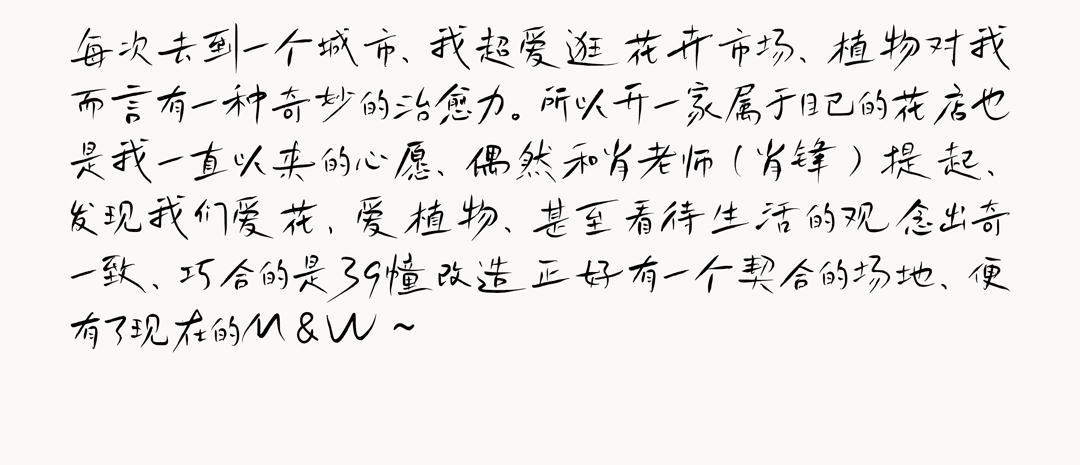 每次去到一个城市、我超爱逛花卉市场、植物对我
而言有一种奇妙的治愈力。所以开一家属于自己的花店也
是我一直以来的心愿、偶然和肖老师（肖锋）提起、
发现我们爱花、爱植物、甚至看待生活的观念出奇
一致、巧合的是39幢改造正好有一个契合的场地、便
有了现在的M&W~